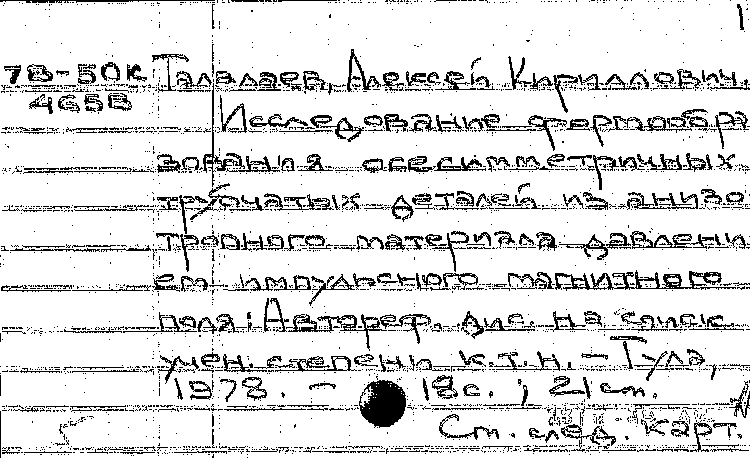 1
7В-50к Талалаев, Алексей Кириллович.
465В
Исследование формообра
зования осесимметричных
трубчатых деталей из анизо
тропного материала давлени
ем импульсного магнитного
поля: Автореф. дис. на соиск.
учен. степени к.т.н. – Тула,
1978. – 18с.; 21см.
См. след. карт.